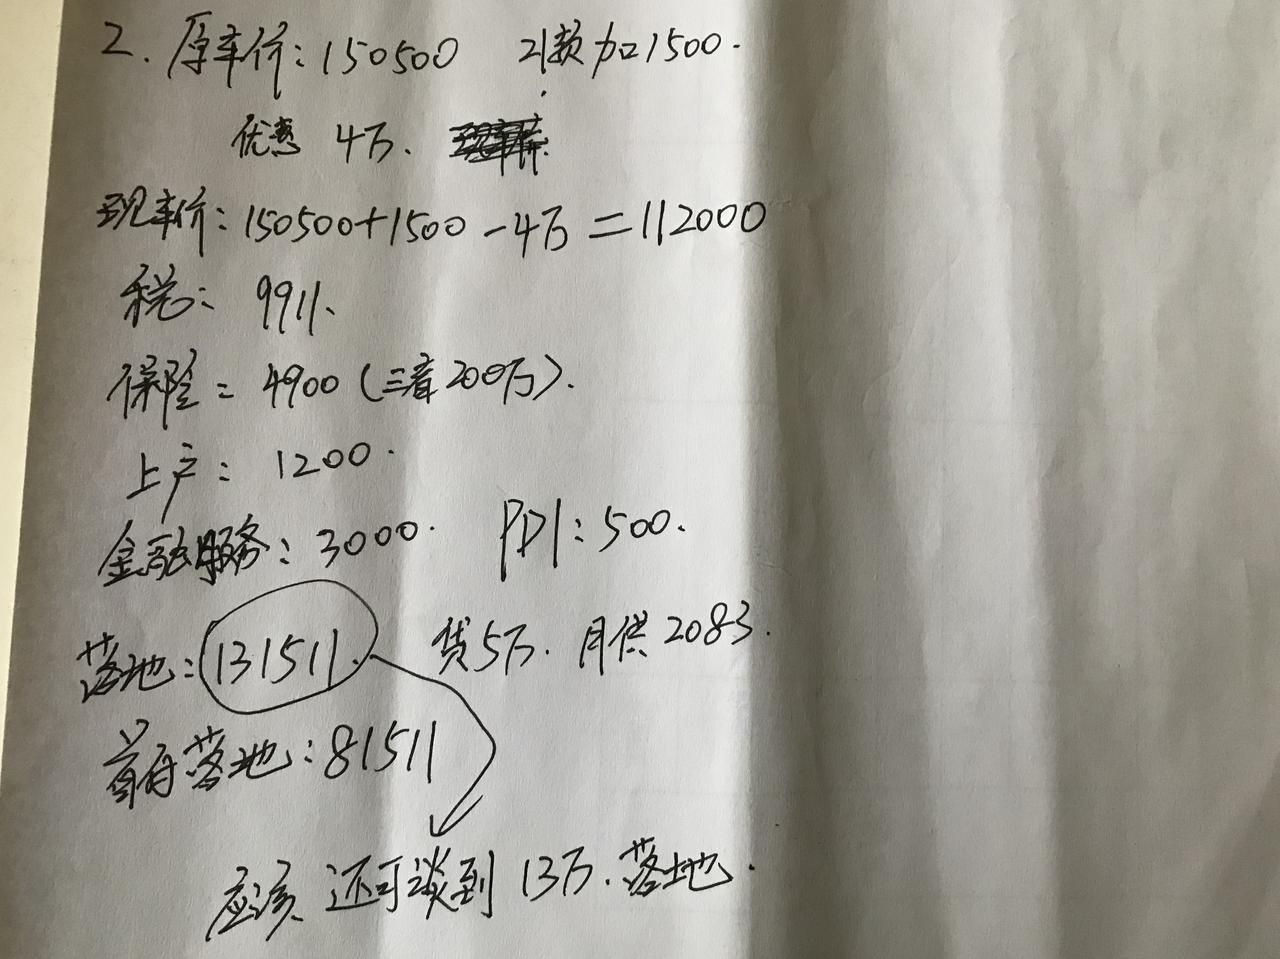 2. 原车价: 150500 21款加1500.
优惠 4万.
现车价: 150500+1500-4万=112000
税: 9911.
保险: 4900 (三者200万).
上户: 1200.
金融服务: 3000. PDI: 500.
落地: 131511. 贷5万. 月供2083.
首付落地: 81511
应该还可谈到13万.落地.